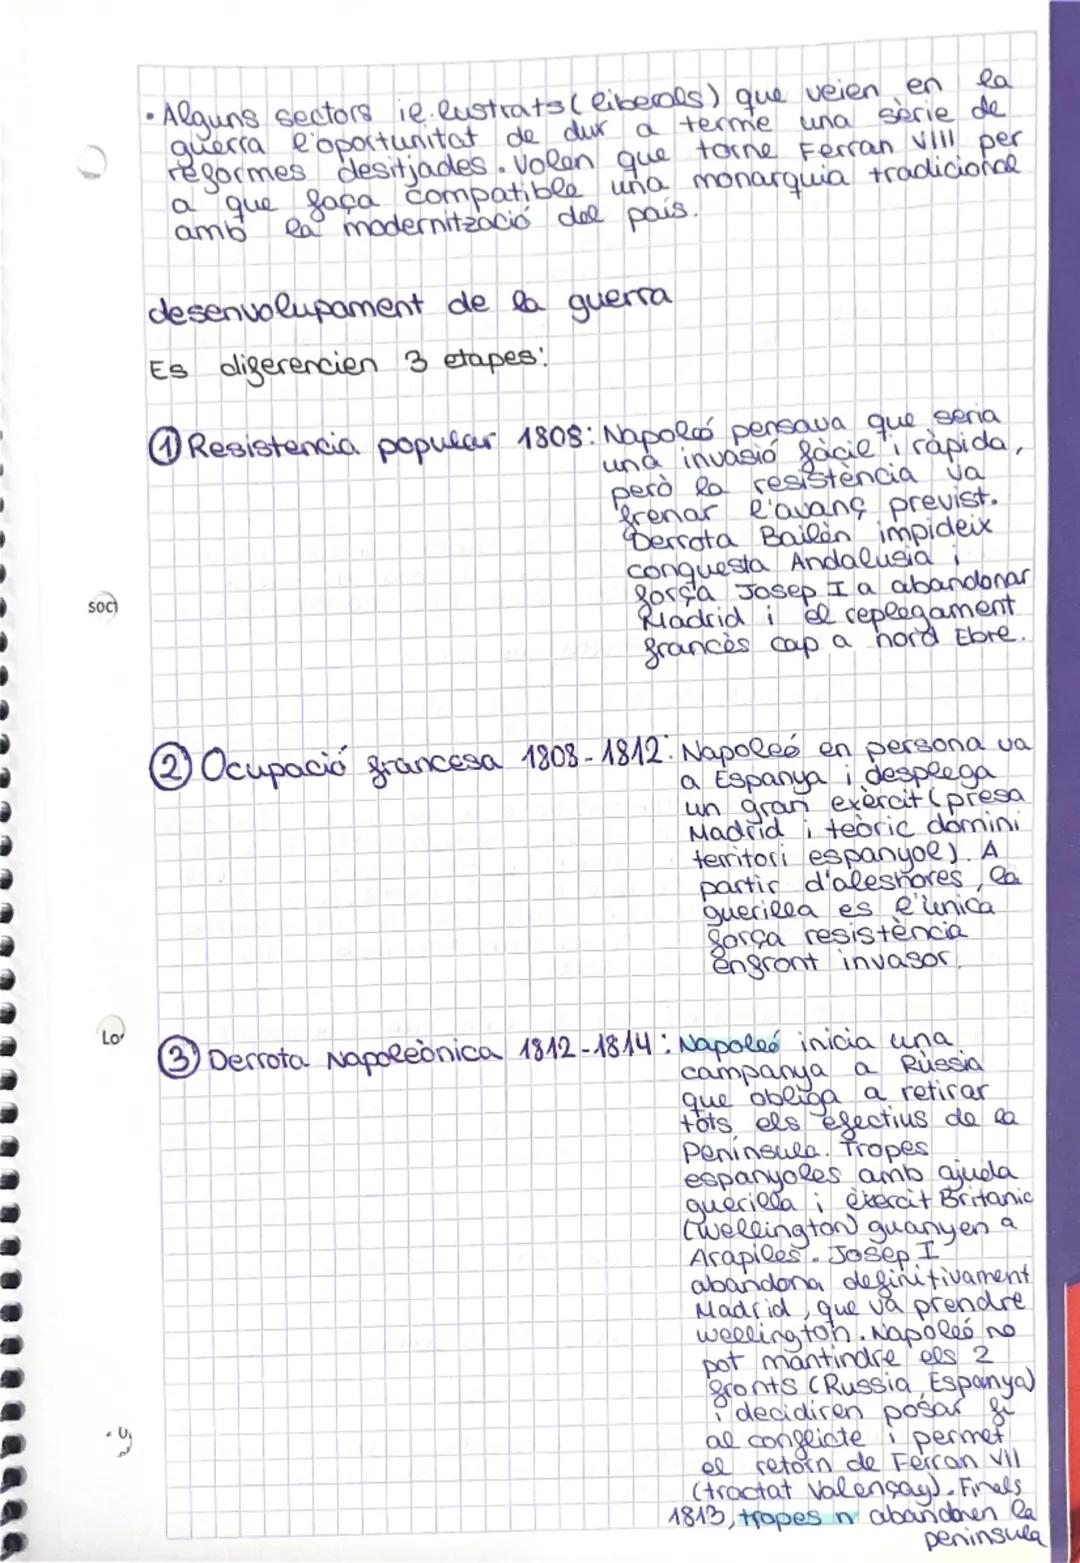 · Alguns sectors il·lustrats (liberals) que veien en la
guerra l'oportunitat de dur a terme una sèrie de
reformes desitjades. Volen que torne Ferran VIII per
a que faça compatible una monarquia tradicional
amb la modernització del país.
desenvolupament de la guerra
Es diferencien 3 etapes:
① Resistencia popular 1808: Napoleó pensava que seria
una invasió fàcil i ràpida,
però la resistència va
frenar l'avanç previst.
Derrota Bailén impideix
conquesta Andalusia i
força Josep I a abandonar
Madrid i el replegament
francès cap a nord Ebre.
soc)
② Ocupació francesa 1808-1812: Napoleó en persona va
a Espanya i desplega
un gran exèrcit (presa
Madrid i teòric domini
territori espanyol). A
partir d'aleshores, la
guerilla es l'única
força resistència
enfront invasor.
Lo
③ Derrota Napoleònica 1812-1814: Napoleó inicia una
campanya a Rússia
que obliga a retirar
tots els efectius de la
Península. Tropes
espanyoles amb ajuda
guerilla i exèrcit Britanic
(Wellington) guanyen a
Arapiles. Josep I
abandona definitivament
Madrid, que va prendre
Wellington. Napoleó no
pot mantindre els 2
fronts (Russia, Espanya)
i decidiren posar fi
al conflicte i permet
el retorn de Ferran VII
(tractat Valençay). Finals
1813, tropes n abandonen la
peninsula